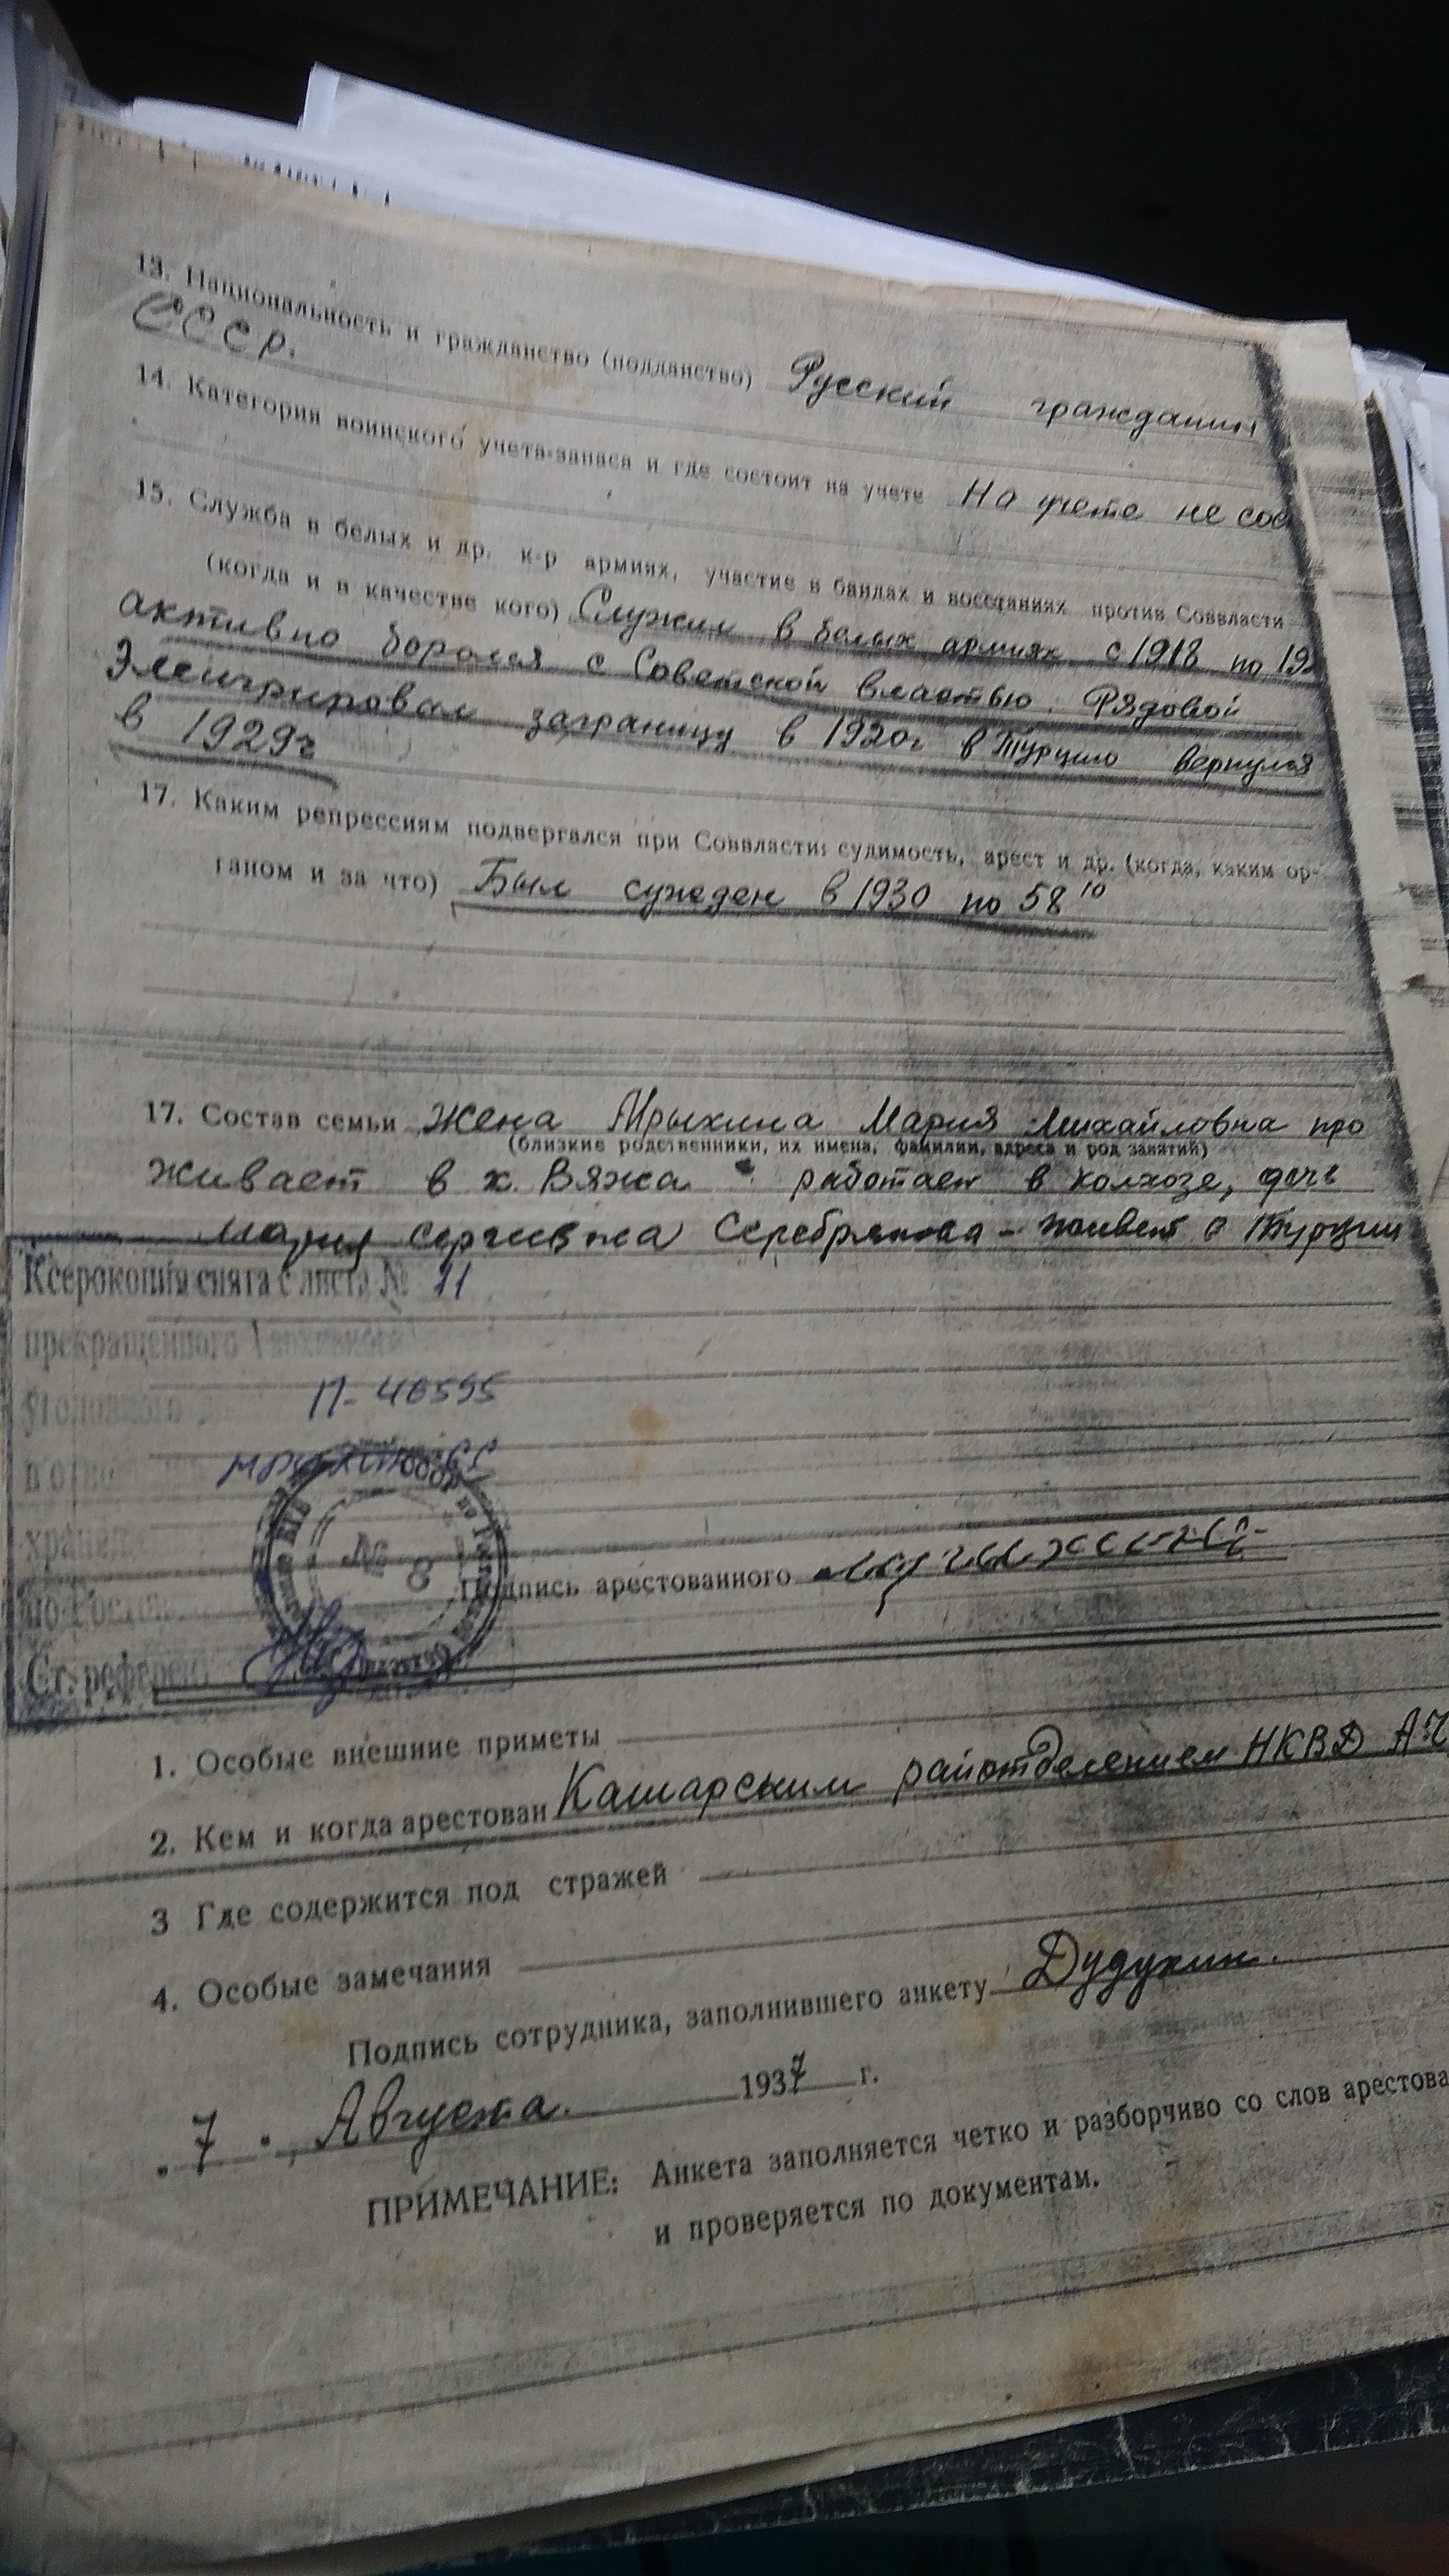 13. Национальность и гражданство (подданство) Русский гражданин
СССР.
14. Категория воинского учета-запаса и где состоит на учете На учете не сос
15. Служба в белых и др. к-р армиях, участие в бандах и восстаниях против Соввласти
(когда и в качестве кого) Служил в белых армиях с 1918 по 19
активно боролся с Советской властью. Рядовой
Эмигрировал заграницу в 1920г в Турцию вернулся
в 1929г
17. Каким репрессиям подвергался при Соввласти: судимость, арест и др. (когда, каким ор-
ганом и за что) Был сужден в 1930 по 58 10
17. Состав семьи Жена Мрыхина Мария Михайловна про
(близкие родственники, их имена, фамилии, адреса и род занятий)
живает в х. Вяжа работает в колхозе, дочь
Мария Сергивна Серебрякова - живет в Турции
Ксерокопия снята с листа № 11
прекращенного
уголовного П-40595
хранящ
Ст. референт
№ 8
Подпись арестованного
1. Особые внешние приметы
2. Кем и когда арестован Кашарским райотделением НКВД АЧ
3 Где содержится под стражей
4. Особые замечания
Подпись сотрудника, заполнившего анкету Дудукин.
7 Августа. 1937 г.
ПРИМЕЧАНИЕ: Анкета заполняется четко и разборчиво со слов арестова
и проверяется по документам.